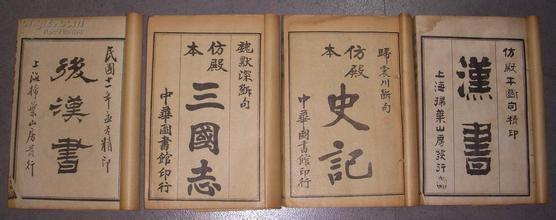 仿殿本斷句精印
漢書
上海掃葉山房發行
歸震川斷句
仿殿本
史記
中華圖書館印行
魏默深斷句
仿殿本
三國志
中華圖書館印行
民國十一年精印
後漢書
上海掃葉山房發行